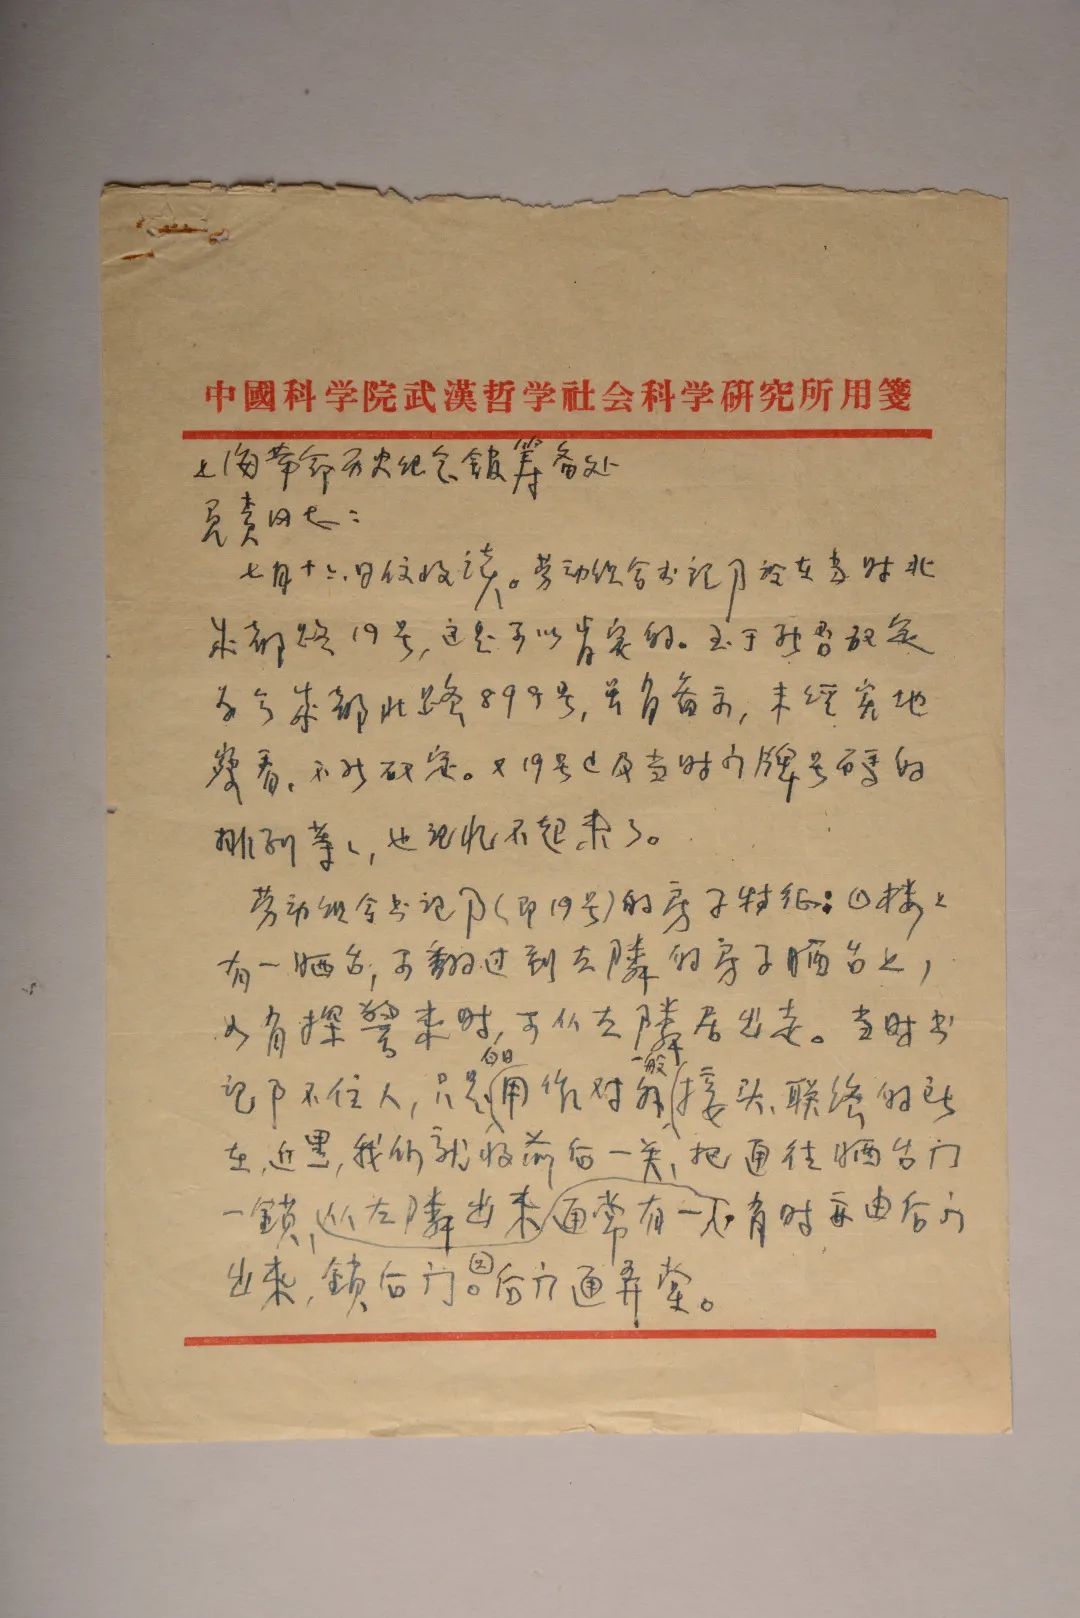 中國科学院武漢哲学社会科学研究所用箋
上海革命历史纪念館筹备处
负责同志：
七月十六日信收读。劳动组合书记部设在当时北
成都路19号，这是可以肯定的。至于能否确定
为今成都北路899号，虽有备示，未经实地
察看，不能确定。又19号以及当时门牌号码的
排列等々，也记忆不起来了。
劳动组合书记部（即19号）的房子特征：①楼上
有一晒台，可翻过到左隣的房子晒台上，
如有探警来时，可从左隣居出走。当时书
白日 一般
记部不住人，只是用作对外接头、联络的所
在，近黑，我们就将前后一关，把通往晒台门
一鎖，从左隣出来通常有一次，有时亦由后门
出来，鎖后门。②后门通弄堂。